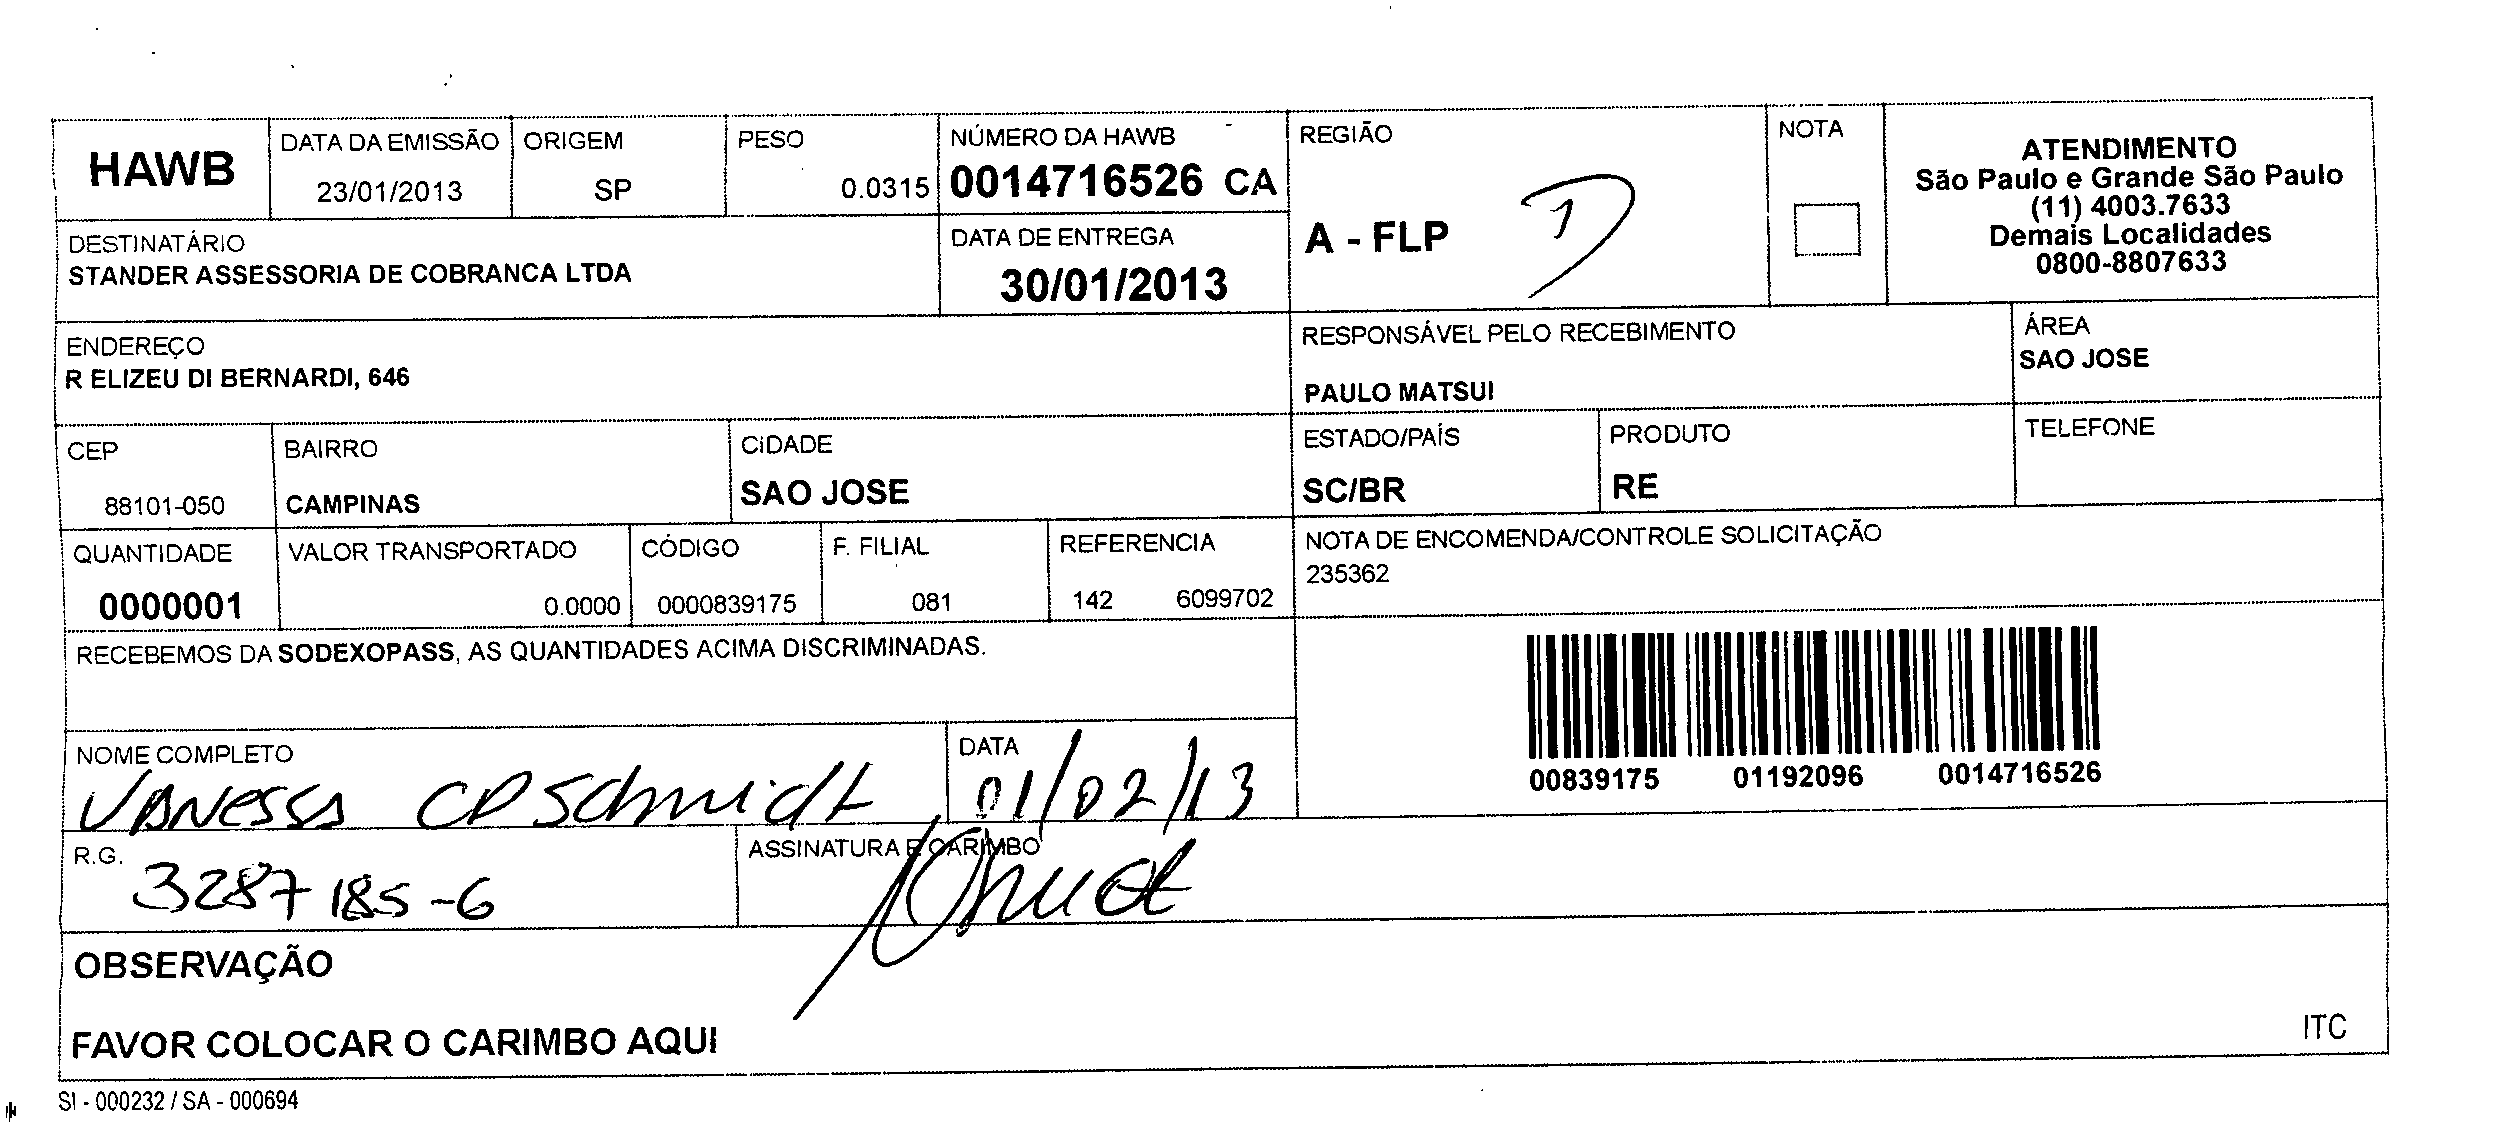 HAWB
DATA DA EMISSÃO
23/01/2013
ORIGEM
SP
PESO
0.0315
NÚMERO DA HAWB
0014716526 CA
REGIÃO
A - FLP
NOTA
ATENDIMENTO
São Paulo e Grande São Paulo
(11) 4003.7633
Demais Localidades
0800-8807633
DESTINATÁRIO
STANDER ASSESSORIA DE COBRANCA LTDA
DATA DE ENTREGA
30/01/2013
ENDEREÇO
R ELIZEU DI BERNARDI, 646
RESPONSÁVEL PELO RECEBIMENTO
PAULO MATSUI
ÁREA
SAO JOSE
CEP
88101-050
BAIRRO
CAMPINAS
CIDADE
SAO JOSE
ESTADO/PAÍS
SC/BR
PRODUTO
RE
TELEFONE
QUANTIDADE
0000001
VALOR TRANSPORTADO
0.0000
CÓDIGO
0000839175
F. FILIAL
081
REFERENCIA
142 6099702
NOTA DE ENCOMENDA/CONTROLE SOLICITAÇÃO
235362
RECEBEMOS DA SODEXOPASS, AS QUANTIDADES ACIMA DISCRIMINADAS.
00839175 01192096 0014716526
NOME COMPLETO
Vanessa CP Schmidt
DATA
01/02/13
R.G.
3287185-6
ASSINATURA E CARIMBO
OBSERVAÇÃO
FAVOR COLOCAR O CARIMBO AQUI
ITC
SI - 000232 / SA - 000694